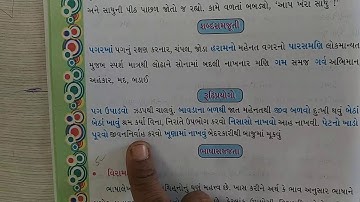 અને સાધુની પીઠ પાછળ જોતો જ રહ્યો. કામે વળતાં બબડ્યો, 'આપ ખરા સાધુ !'
શબ્દસમજૂતી
પગરખાં પગનું રક્ષણ કરનાર, ચંપલ, જોડા હરામનો મહેનત વગરનો પારસમણિ લોકમાન્યતા
મુજબ સ્પર્શ માત્રથી લોઢાને સોનામાં બદલી નાખનાર મણિ ગમ સમજ ગર્વ અભિમાન
અહંકાર, મદ, બડાઈ
રૂઢિપ્રયોગો
પગ ઉપાડવો ઝડપથી ચાલવું, બાવડાના બળથી જાત મહેનતથી જીવ બળવો દુઃખી થવું બેઠાં
બેઠાં ખાવું શ્રમ કર્યા વિના, નિરાંતે ઉપભોગ કરવો નિસાસો નાખવો આહ નાખવી. પેટનો ખાડો
પૂરવો જીવનનિર્વાહ કરવો ખૂણામાં નાખવું બેદરકારીથી બાજુમાં મૂકવું
ભાષાસજ્જતા
• વિરામ
ભાષાલેખ ચિહ્નોનું ઘણું મહત્ત્વ છે. ખાસ કરીને અર્થ કે ભાવ અનુસાર ભાષાને